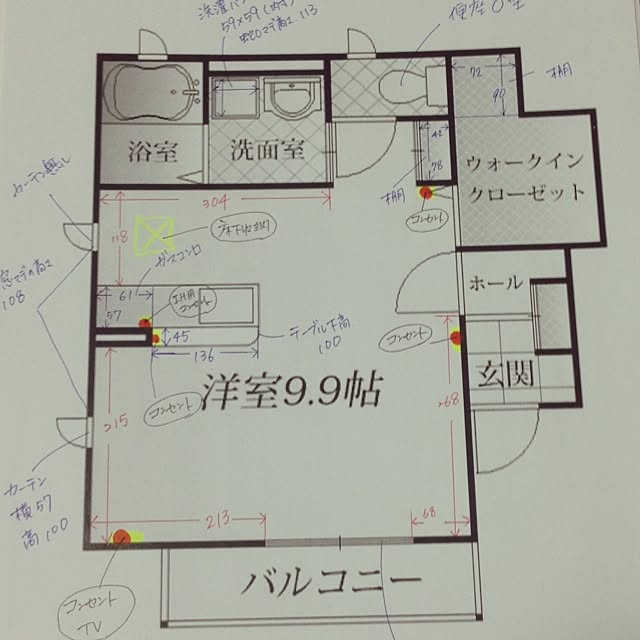 洗濯パン
59×59(内寸)
蛇口マデ高工 113
便座O型
72
90
棚
浴室
洗面室
42
78
棚
ウォークイン
クローゼット
カーテン無し
304
コンセント
118
床下収納
ガスコンロ
ホール
窓マデの高工
108
61
57
IH用
コンセント
45
136
テーブル下高
100
コンセント
玄関
コンセント
洋室9.9帖
215
268
カーテン
横57
高100
213
68
コンセント
TV
バルコニー